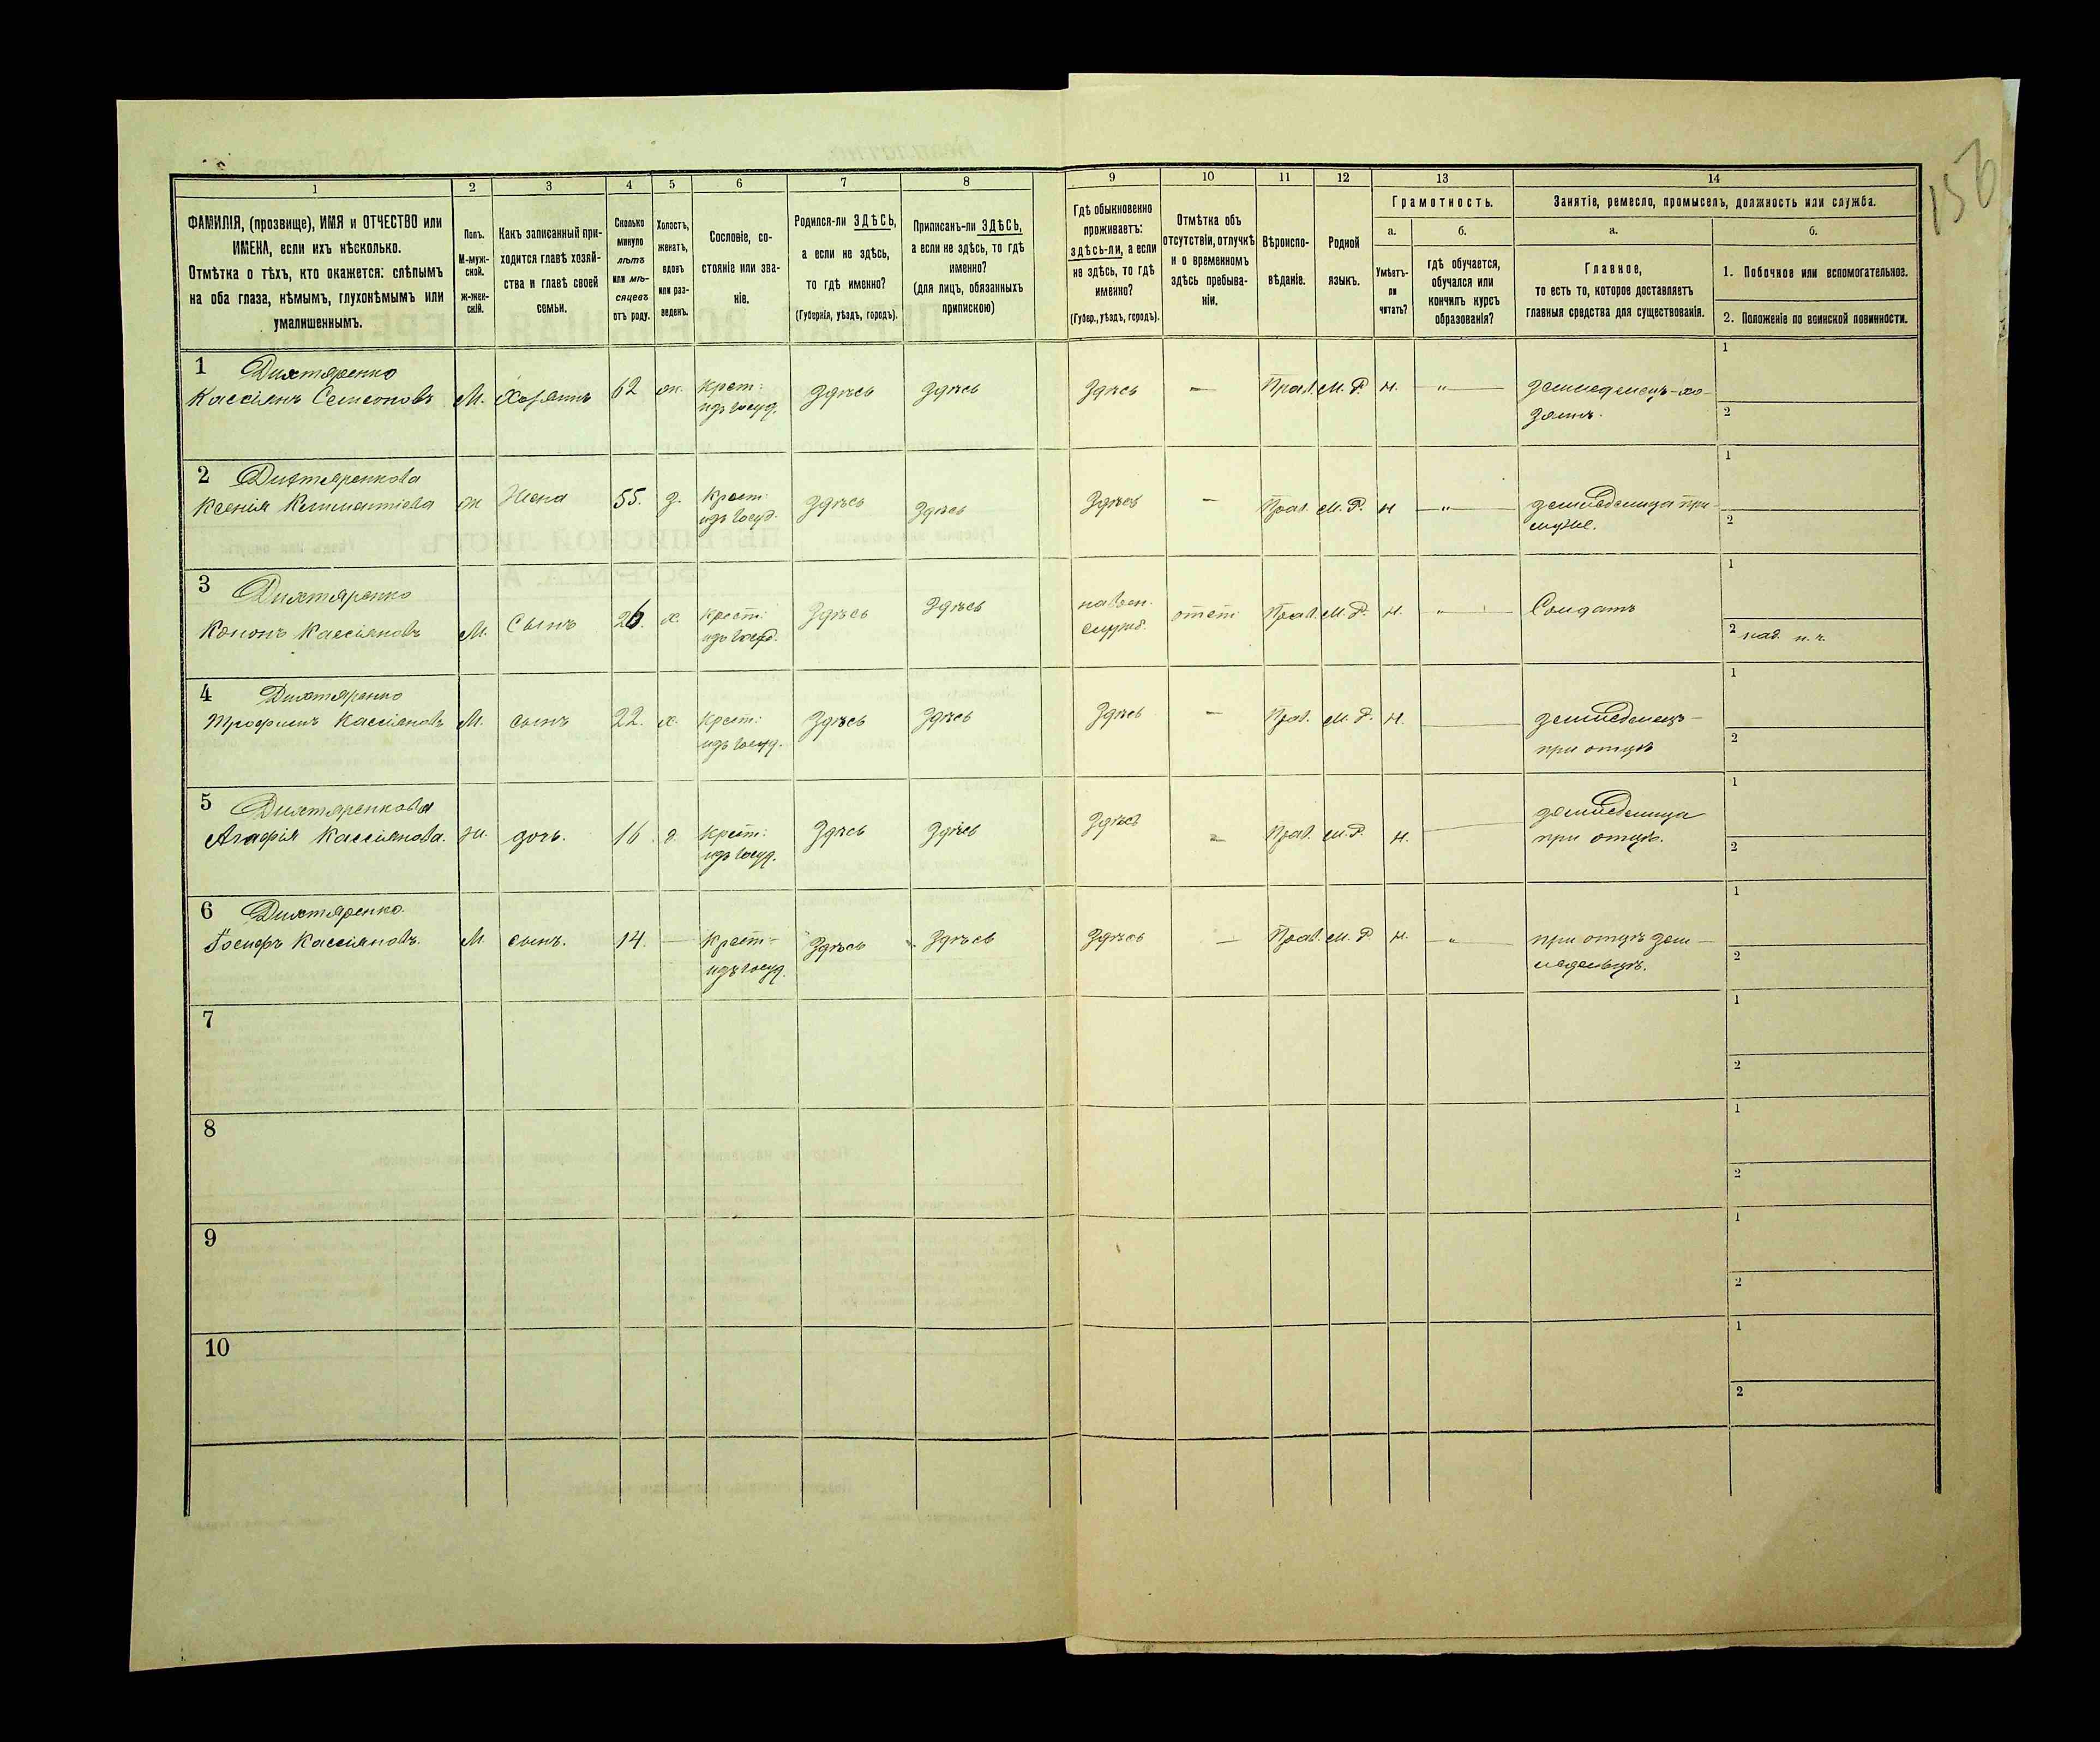 156
1
2
3
4
5
6
7
8
9
10
11
12
13
14
ФАМИЛІЯ, (прозвище), ИМЯ и ОТЧЕСТВО или
ИМЕНА, если ихъ нѣсколько.
Отмѣтка о тѣхъ, кто окажется: слѣпымъ
на оба глаза, нѣмымъ, глухонѣмымъ или
умалишеннымъ.
Полъ.
М-муж-
ской.
ж-жен-
скій.
Какъ записанный при-
ходится главѣ хозяй-
ства и главѣ своей
семьи.
Сколько
минуло
лѣтъ
или мѣ-
сяцевъ
отъ роду.
Холостъ,
женатъ,
вдовъ
или раз-
веденъ.
Сословіе, со-
стояніе или зва-
ніе.
Родился-ли ЗДѢСЬ,
а если не здѣсь,
то гдѣ именно?
(Губернія, уѣздъ, городъ).
Приписанъ-ли ЗДѢСЬ,
а если не здѣсь, то гдѣ
именно?
(для лицъ, обязанныхъ
припискою)
Гдѣ обыкновенно
проживаетъ:
здѣсь-ли, а если
не здѣсь, то гдѣ
именно?
(Губер., уѣздъ, городъ).
Отмѣтка объ
отсутствіи, отлучкѣ
и о временномъ
здѣсь пребыва-
ніи.
Вѣроиспо-
вѣданіе.
Родной
языкъ.
Грамотность.
а.
Умѣетъ-
ли
читать?
б.
гдѣ обучается,
обучался или
кончилъ курсъ
образованія?
Занятіе, ремесло, промыселъ, должность или служба.
а.
Главное,
то есть то, которое доставляетъ
главныя средства для существованія.
б.
1. Побочное или вспомогательное.
2. Положеніе по воинской повинности.
1 Дихтяренко
Кассіянъ Семеоновъ М. Хозяинъ 62 ж. Крест: здѣсь здѣсь здѣсь — Прав. М. Р. н. „ земледѣлецъ-хо-
изъ госуд.
зяинъ.
1
2
2 Дихтяренкова
Ксенія Климентіева ж Жена 55. з. Крест: здѣсь здѣсь здѣсь — Прав. М. Р. н „ земледѣлица при
изъ госуд.
мужѣ.
1
2
3 Дихтяренко
Кононъ Кассіяновъ М. Сынъ 26. х. Крест: здѣсь здѣсь на воен. Прав. М. Р. н. „ Солдатъ
изъ госуд.
служб.
1
2 н. ч.
4 Дихтяренко
Трофимъ Кассіяновъ М. сынъ 22. х. Крест: здѣсь здѣсь здѣсь — Прав. М. Р. н. земледѣлецъ —
изъ госуд.
при отцѣ
1
2
5 Дихтяренкова
Агафія Кассіянова. ж. дочь. 16. д. Крест: здѣсь здѣсь здѣсь — Прав. М. Р. н. земледѣлица
изъ госуд.
при отцѣ.
1
2
6 Дихтяренко.
Іосифъ Кассіяновъ. М сынъ. 14. — Крест: здѣсь здѣсь здѣсь — Прав. М. Р. н. „ при отцѣ зем-
изъ госуд.
ледѣлецъ.
1
2
7
1
2
8
1
2
9
1
2
10
1
2